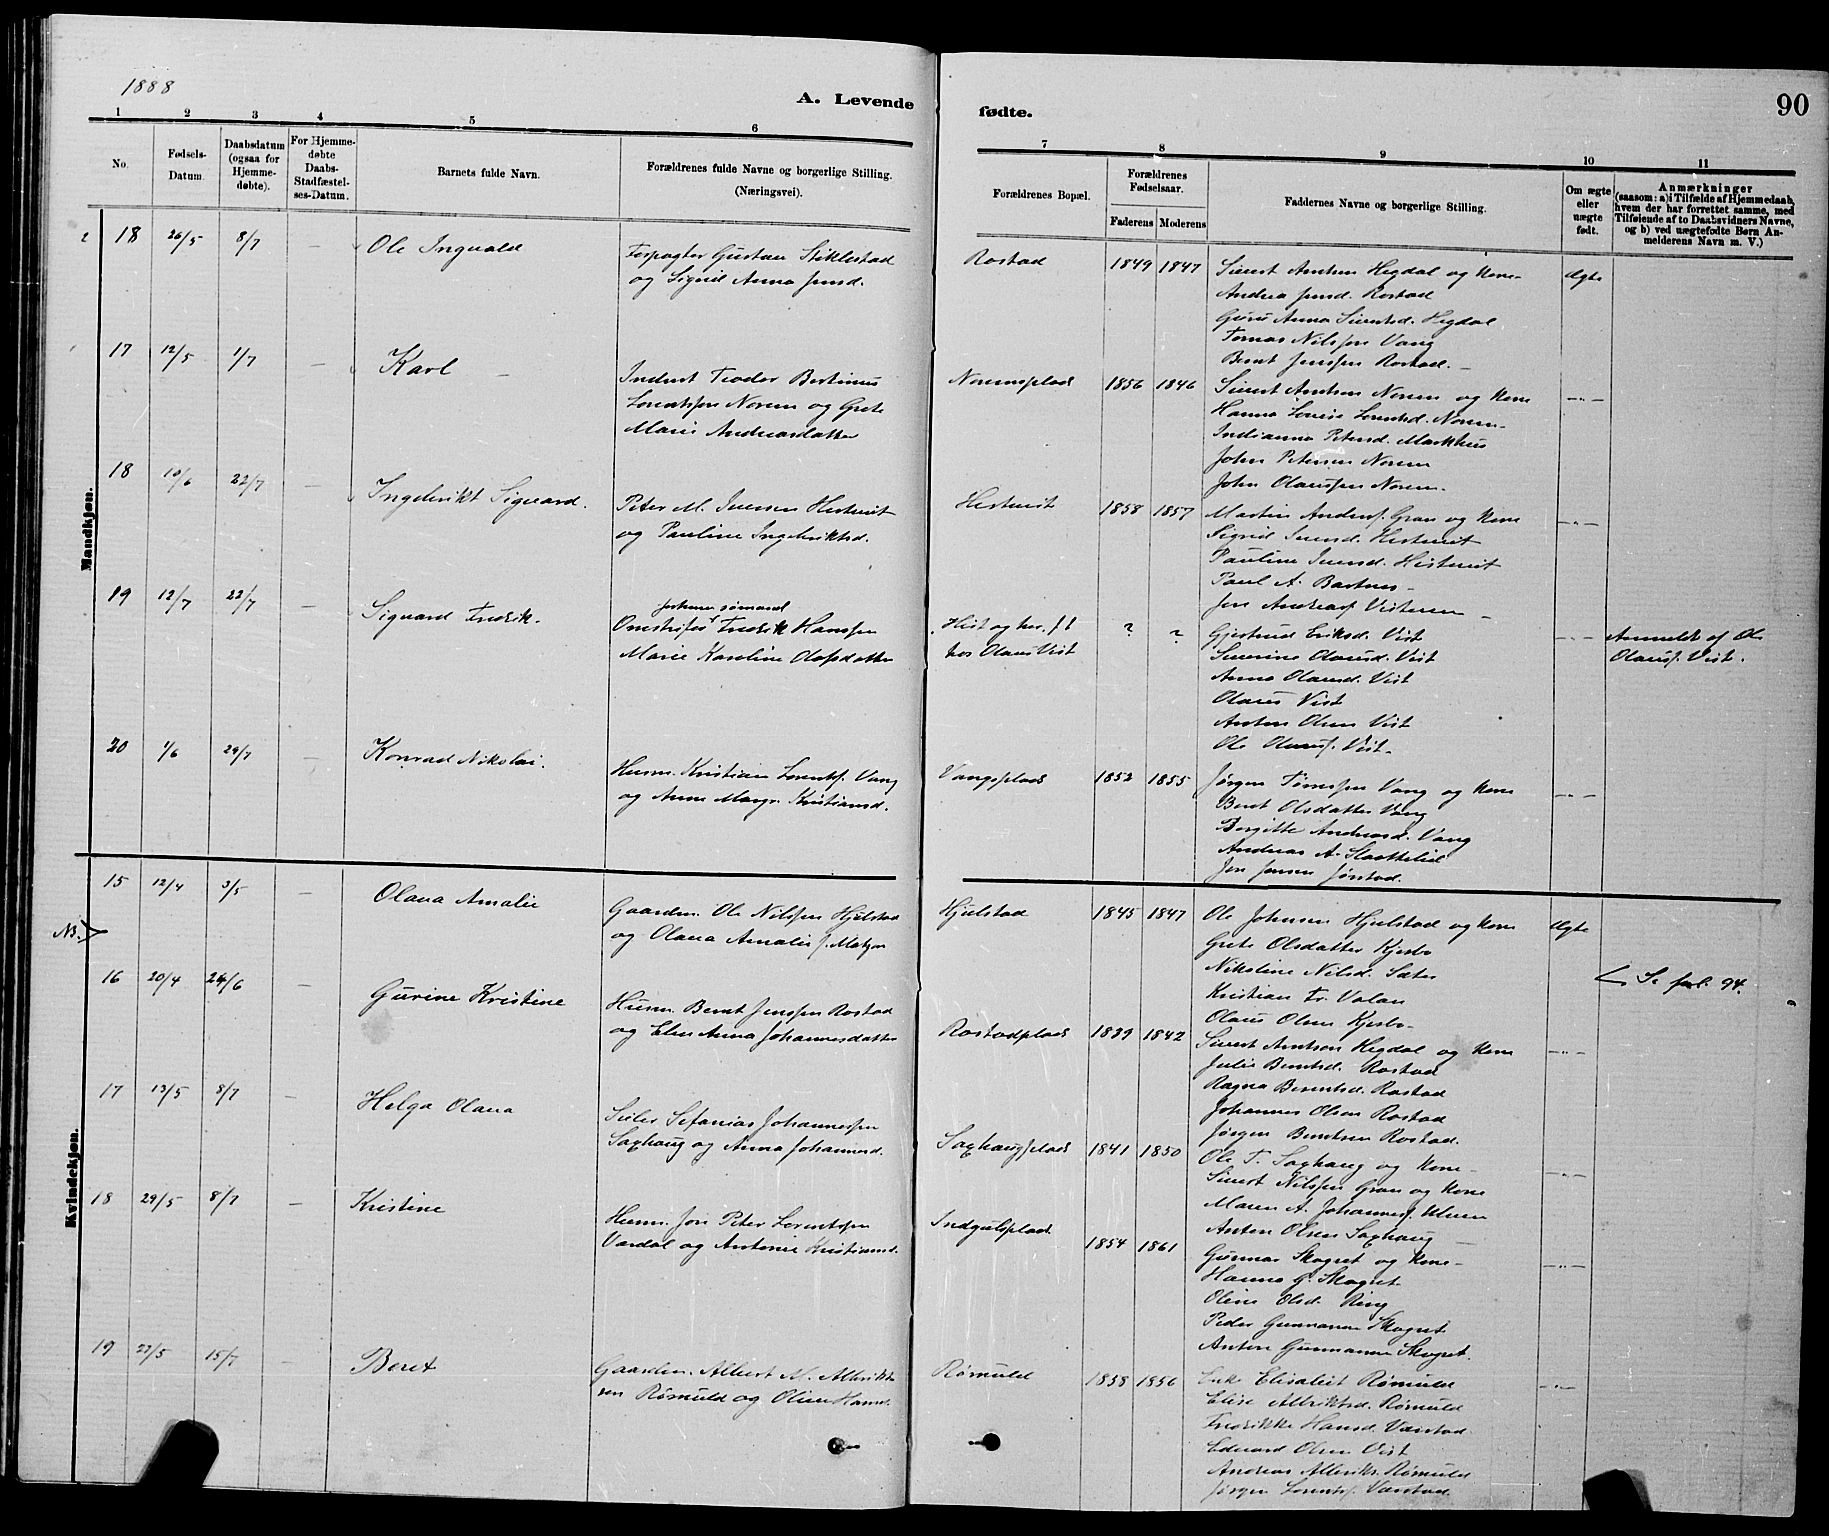 1888
A. Levende
fødte.
90
1 2 3 4 5 6 7 8 9 10 11
No.
Fødsels-
Datum.
Daabsdatum
(ogsaa for
Hjemme-
døbte).
For Hjemme-
døbte
Daabs-
Stadfæstel-
ses-Datum.
Barnets fulde Navn.
Forældrenes fulde Navne og borgerlige Stilling.
(Næringsvei).
Forældrenes Bopæl.
Forældrenes
Fødselsaar.
Faderens Moderens
Faddernes Navne og borgerlige Stilling.
Om ægte
eller
uægte
født.
Anmærkninger
(saasom: a) i Tilfælde af Hjemmedaab,
hvem der har forrettet samme, med
Tilføiende af to Daabsvidners Navne,
og b) ved uægtefødte Børn An-
melderens Navn m. V.)
Mandkjøn.
18 26/5 8/7 — Ole Ingvald
Gustav Stiklestad
og Sigrid Anna Jensd.
Rostad 1849 1847
Sivert Arntsen Hegdal og Kone
Andrea Jensd. Rostad
Guru Anna Siversd. Hegdal
Tomas Nilssen Vang
Bernt Jenssen Rostad. —
Ægte
17 12/5 1/7 — Karl —
Teodor
Norem og Grete
Marie Andreasdatter
Noremsplads 1856 1846
Sivert Arntsen Norem og Kone
Hanna Lovise Norem
Indianna Petersd. Markhus
John Petersen Norem
John Olaussen Norem.
— " —
18 10/6 22/7 — Ingebrikt Sigvard.
Peter M. Iversen Hestveit
og Pauline Ingebriktsd.
Hestveit 1858 1857
Martin Anders. Gran og Kone
Sigrid Iversd. Hestveit
Pauline Iversd. Hestveit
Paul A. Bartnes —
— " —
19 12/7 22/7 — Sigvard Fredrik.
Fredrik Hanssen
Marie Karoline Olafsdatter
hos Olaus Vist
? ?
Gjertrud Eriksd. Vist
Severine Olausd. Vist
Anna Olausd. Vist
Olaus Vist
Anton Olsen Vist
Ole Olauss. Vist
— " —
Anmeldt af Ole
Olauss. Vist.
20 1/6 29/7 — Konrad Nikolai.
Husm. Kristian Lorents. Vang
og Anne Margr. Kristiansd.
Vangsplads 1852 1855
Jørgen Tønnessen Vang og Kone
Beret Olsdatter Vang
Bergitte Andreasd. Vang
Andreas A. Slottelid
Jon Jensen Jørstad.
— " —
Kvindekjøn.
15 12/4 3/5 — Olava Amalie
Gaardm. Ole Nilssen Hjelstad
og Olava Amalie f. Matzon
Hjelstad 1845 1847
Ole Johnsen Hjelstad og Kone
Grete Olsdatter Kjesbo
Nikoline Nilsd. Sæter
Kristian Tr. Valan
Olaus Olsen Kjesbo
Ægte
NB.
S. fol. 94.
16 20/4 24/6 — Gurine Kristine
Husm. Bernt Jenssen Rostad
og Elen Anna Johannesdatter
Rostadplads 1839 1842
Sivert Arntsen Hegdal og Kone
Julie Berntsd. Rostad
Ragna Berntsd. Rostad
Johannes Olsen Rostad
Jørgen Berntsen Rostad.
— " —
17 13/5 8/7 — Helga Olava
Sefanias Johannessen
Saxhaug og Anna Johannesd.
Saxhaugplads 1841 1850
Ole T. Saxhaug og Kone
Sivert Nilssen Gran og Kone
Maren A. Johanness.
Anton Olsen Saxhaug —
— " —
18 29/5 8/7 — Kristine
Husm. Jon Peter Lorentsen
Vardal og Antonie Kristiansd.
Indgulsplads 1854 1861
Gunnar Skogset og Kone
Hanna G. Skogset
Oline Olsd. Ring
Peder Gunnarsen Skogset
Anton Gunnarsen Skogset.
— " —
19 22/5 15/7 — Beret
Gaardm. Albert M. Albrikt-
sen Rømuld og Oline Hansd.
Rømuld 1858 1856
Enke Elisabet Rømuld
Elise Albriktsd. Rømuld
Fredrikke Hansd. Værstad
Edvard Olsen Vist
Andreas Albrikts. Rømuld
Jørgen Lorents. Værstad.
— " —